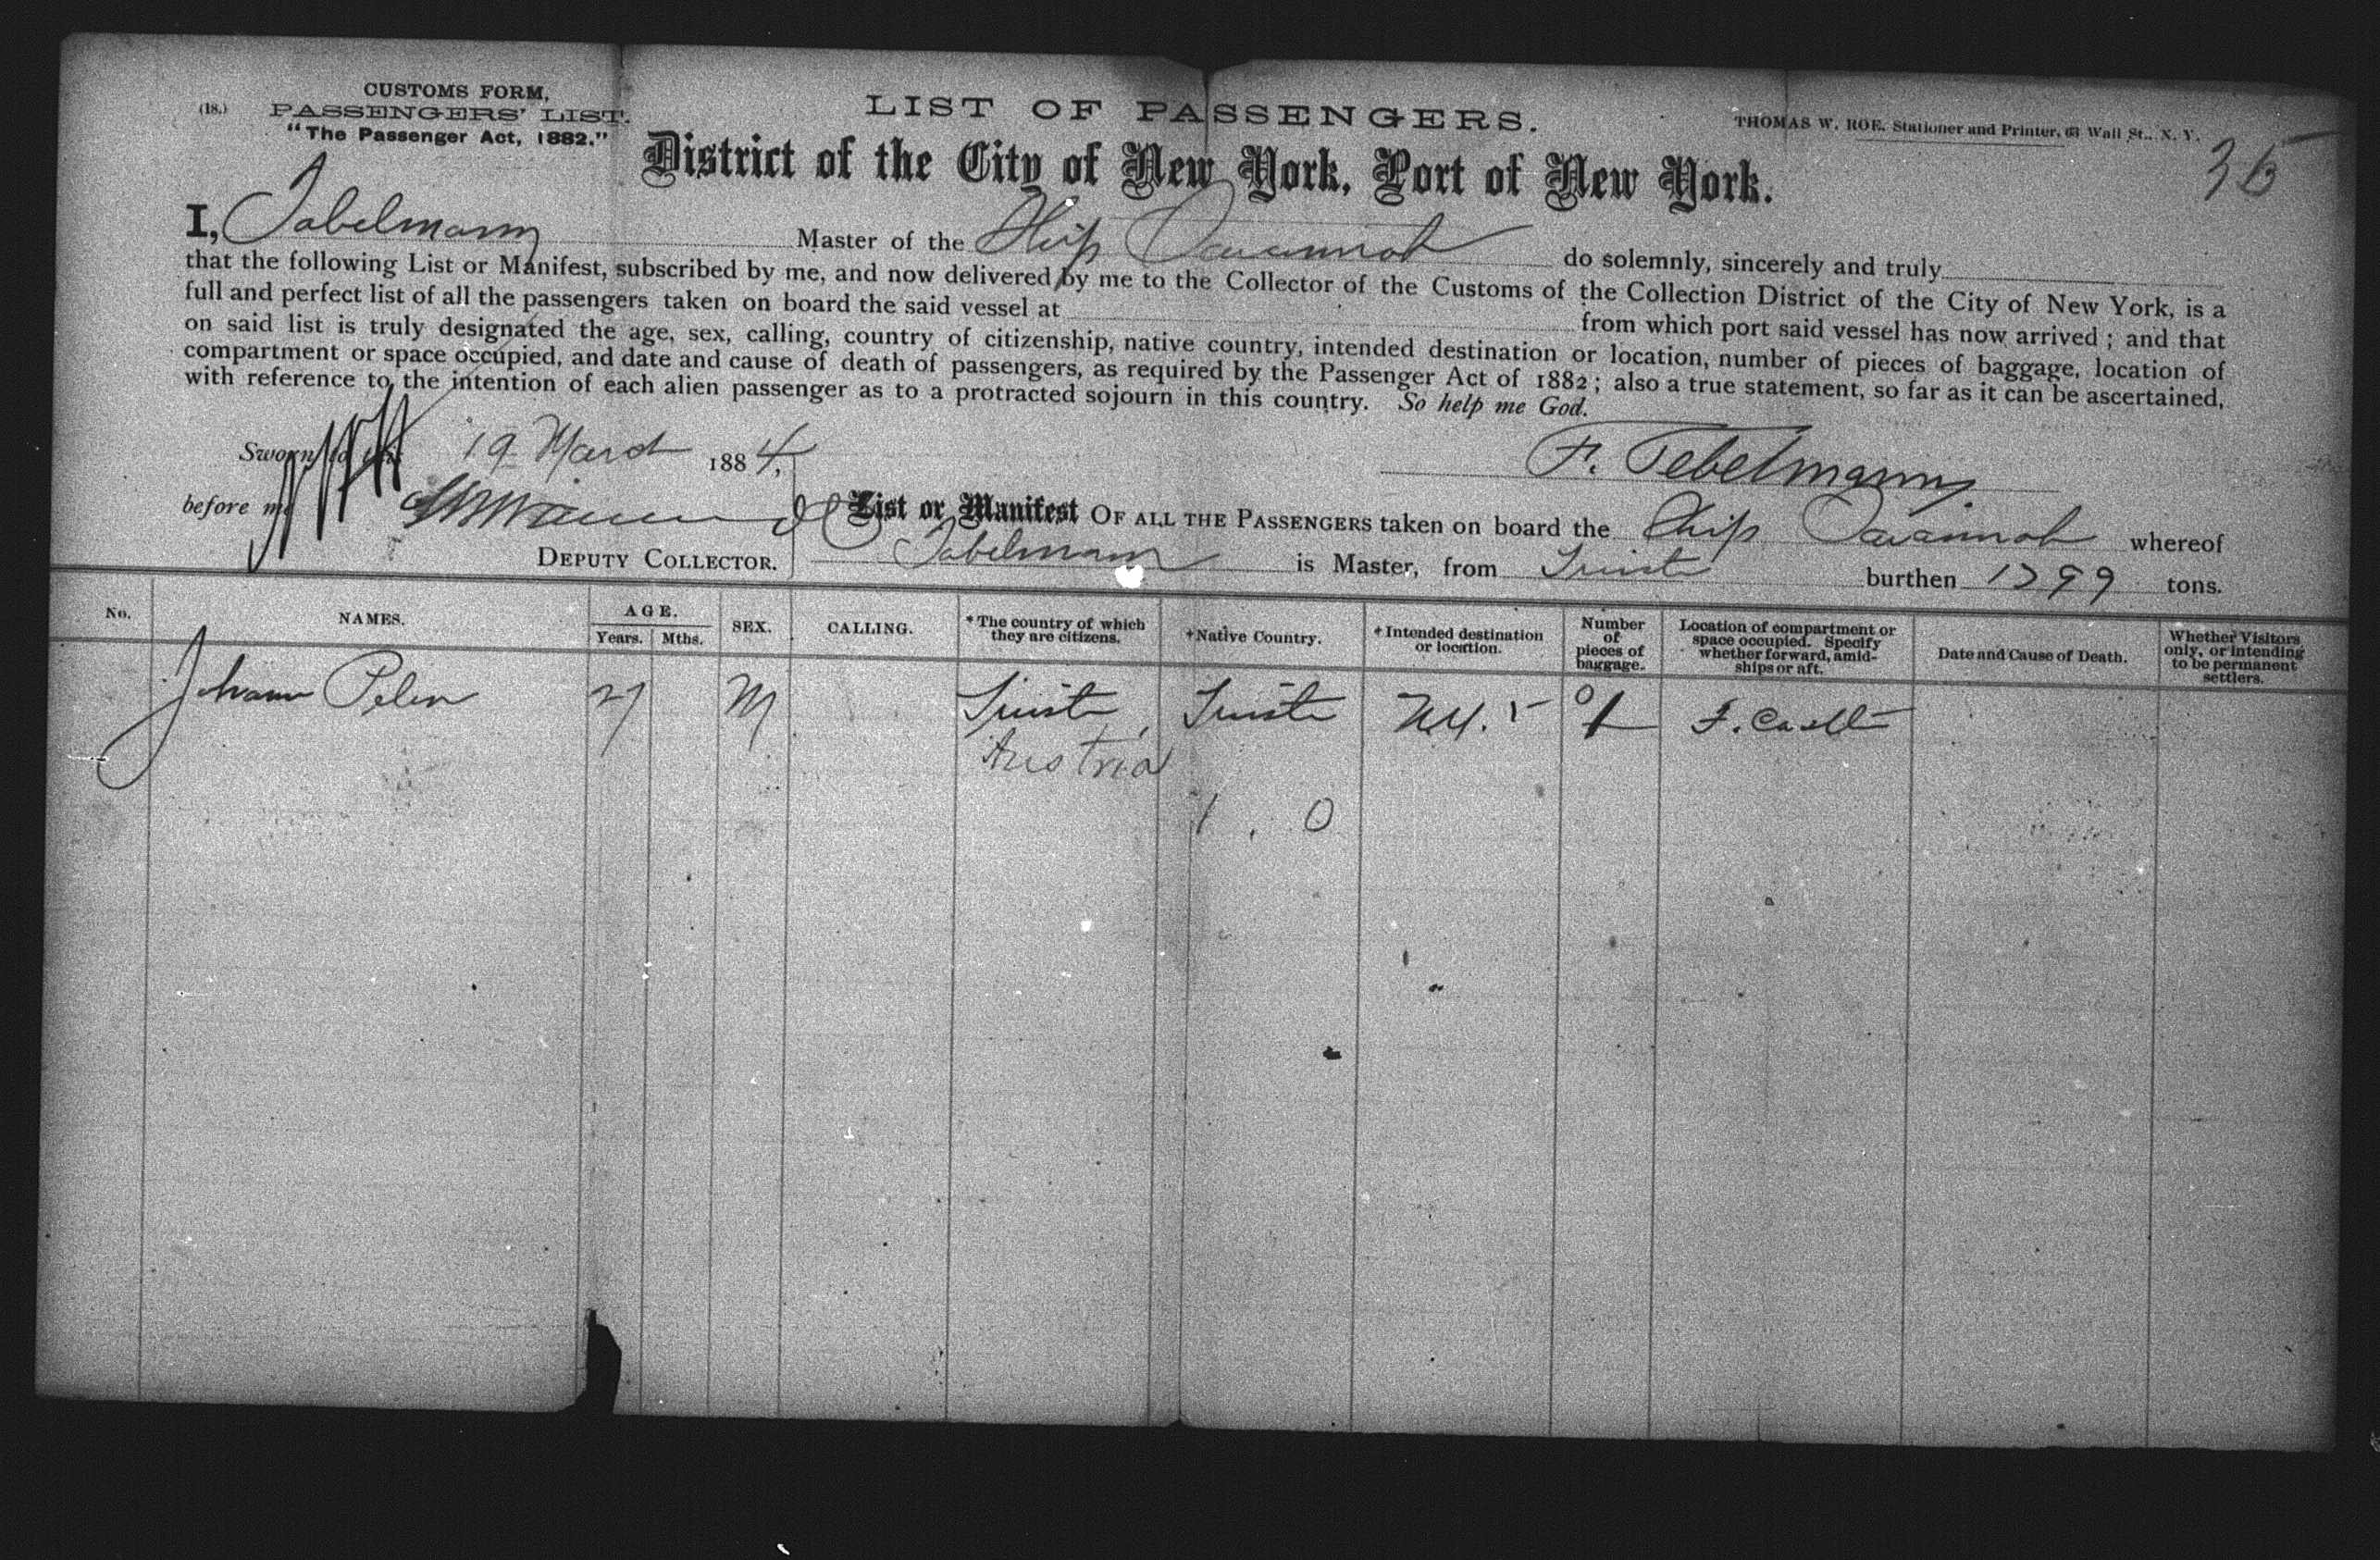 CUSTOMS FORM,
(18.) PASSENGERS' LIST.
"The Passenger Act, 1882."
LIST OF PASSENGERS.
THOMAS W. ROE, Stationer and Printer, 63 Wall St., N. Y.
36
District of the City of New York, Port of New York.
I, Tebelmann Master of the Ship Savannah do solemnly, sincerely and truly
that the following List or Manifest, subscribed by me, and now delivered by me to the Collector of the Customs of the Collection District of the City of New York, is a
full and perfect list of all the passengers taken on board the said vessel at from which port said vessel has now arrived; and that
on said list is truly designated the age, sex, calling, country of citizenship, native country, intended destination or location, number of pieces of baggage, location of
compartment or space occupied, and date and cause of death of passengers, as required by the Passenger Act of 1882; also a true statement, so far as it can be ascertained,
with reference to the intention of each alien passenger as to a protracted sojourn in this country. So help me God.
Sworn to this 19 March 1884,
F. Tebelmann
before me
DEPUTY COLLECTOR.
List or Manifest OF ALL THE PASSENGERS taken on board the Ship Savannah whereof
Tebelmann is Master, from Trieste burthen 1799 tons.
No. NAMES. AGE. Years. Mths. SEX. CALLING. *The country of which they are citizens. +Native Country. +Intended destination or location. Number of pieces of baggage. Location of compartment or space occupied. Specify whether forward, amidships or aft. Date and Cause of Death. Whether Visitors only, or intending to be permanent settlers.
Johann 27 M Trieste, Trieste N.Y. 1
Austria
1 . 0